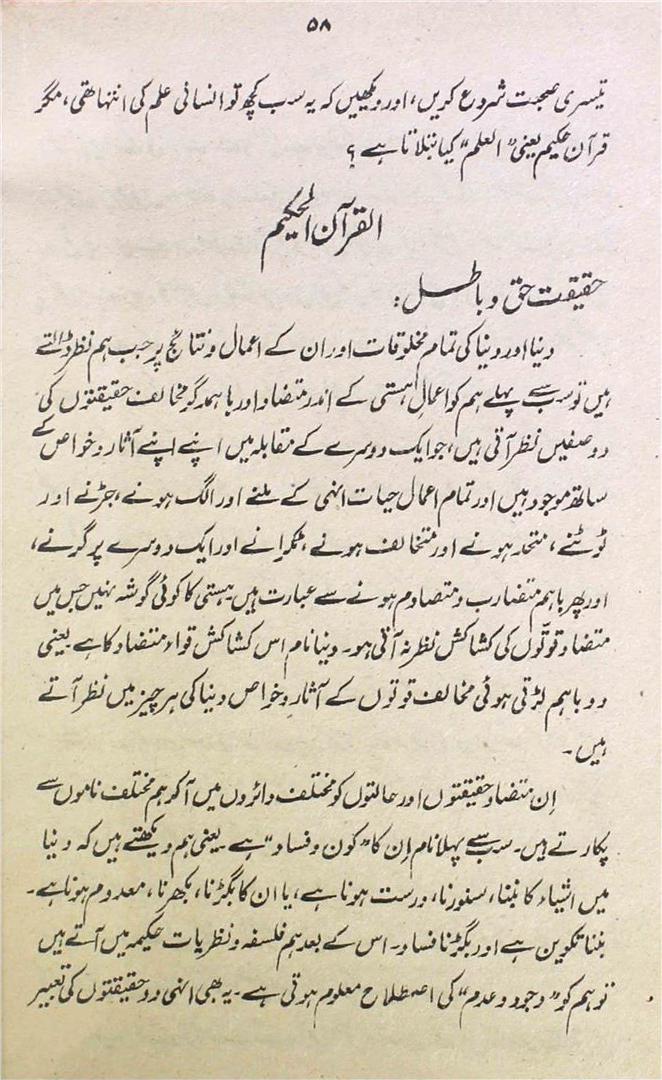 ۵۸
تیسری صحبت شروع کریں، اور دیکھیں کہ یہ سب کچھ تو انسانی علم کی انتہا تھی، مگر
قرآن حکیم یعنی "العلم" کیا بتلاتا ہے؟
القرآن الحکیم
حقیقت حق و باطل:
دنیا اور دنیا کی تمام مخلوقات اور ان کے اعمال و نتائج پر جب ہم نظر ڈالتے
ہیں تو سب سے پہلے ہم کو اعمال ہستی کے اندر متضاد اور باہمدگر مخالف حقیقتوں کی
دو صفیں نظر آتی ہیں، جو ایک دوسرے کے مقابلہ میں اپنے اپنے آثار و خواص کے
ساتھ موجود ہیں اور تمام اعمال حیات انہی کے ملنے اور الگ ہونے، جڑنے اور
ٹوٹنے، متحد ہونے اور متخالف ہونے، ٹکرانے اور ایک دوسرے پر گرنے،
اور پھر باہم متضارب و متصادم ہونے سے عبارت ہیں۔ ہستی کا کوئی گوشہ نہیں جس میں
متضاد قوتوں کی کشاکش نظر نہ آتی ہو۔ دنیا نام اس کشاکش قواء متضاد کا ہے یعنی
دو باہم لڑتی ہوئی مخالف قوتوں کے آثار و خواص دنیا کی ہر چیز میں نظر آتے
ہیں۔
اِن متضاد حقیقتوں اور حالتوں کو مختلف دائروں میں آکر ہم مختلف ناموں سے
پکارتے ہیں۔ سب سے پہلا نام اِن کا "کون و فساد" ہے۔ یعنی ہم دیکھتے ہیں کہ دنیا
میں اشیاء کا بننا، سنورنا، درست ہونا ہے، یا ان کا بگڑنا، بکھرنا، معدوم ہونا ہے۔
بننا تکوین ہے اور بگڑنا فساد۔ اس کے بعد ہم فلسفہ و نظریات حکیمہ میں آتے ہیں
تو ہم کو "وجود و عدم" کی اصطلاح معلوم ہوتی ہے۔ یہ بھی انہی دو حقیقتوں کی تعبیر